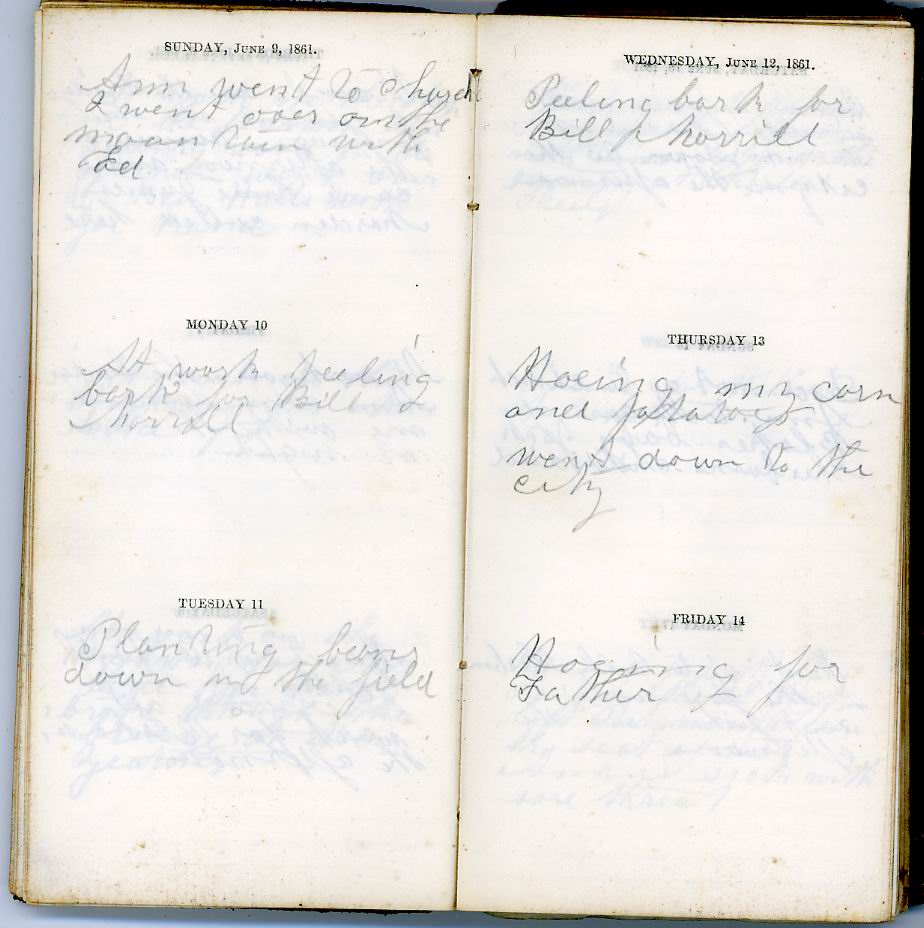 SUNDAY, JUNE 9, 1861.
Ann went to church
I went over on the
moantain with
Ed
MONDAY 10
At work peeling
bark for Bill
TUESDAY 11
Planting beans
down in the field
WEDNESDAY, JUNE 12, 1861.
Peeling bark for
Bill
THURSDAY 13
Hoeing my corn
and potatoes
went down to the
city
FRIDAY 14
Hoeing for
Father